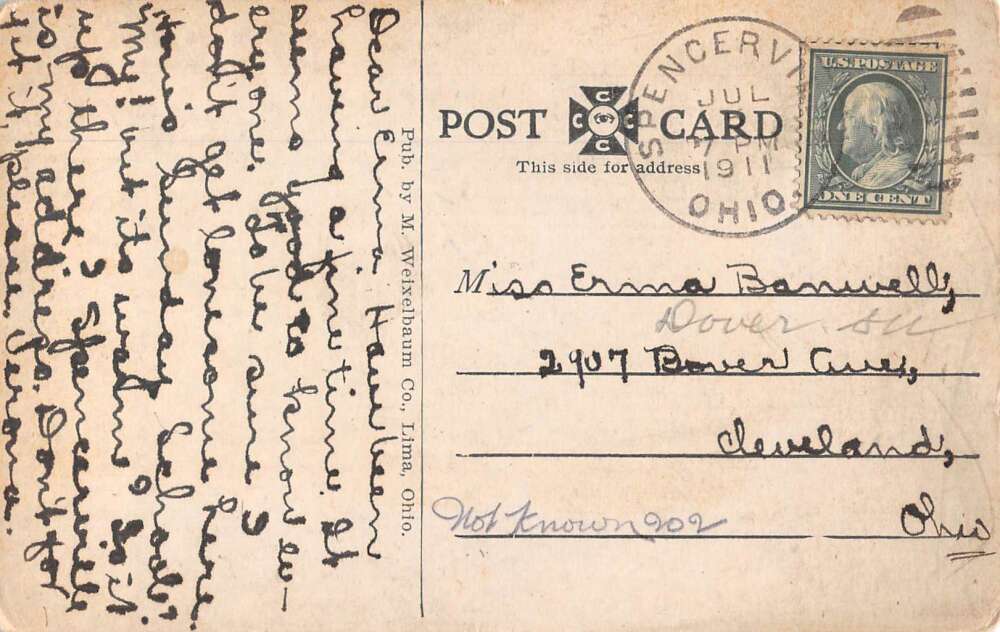 Dear Erma Have been
having a fine time. It
seems good to know ev-
ery one. To be sure I
don't get lonesome here
Sunday School?
My! but it's warm. Is it
up there? Spencerville
is my address. Don't for
get it, please.
Pub. by M. Weixelbaum Co., Lima, Ohio.
POST CARD
C C C C
This side for address
SPENCERVI
JUL
7 PM
1911
OHIO
U.S. POSTAGE
ONE CENT
Miss Erma Banwell,
Dover
2907 Bover Ave,
Cleveland,
Not Known 202
Ohio